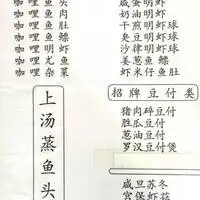 咖哩鱼头
咖哩鱼肉
咖哩鱼肚
咖哩鱼鳔
咖哩明虾
咖哩尤鱼
咖哩杂菜
上汤蒸鱼头
咸蛋明虾
奶油明虾
干煎明虾球
臭豆明虾球
沙律明虾球
姜葱鱼鳔
虾米仔鱼肚
招牌豆付类
猪肉碎豆付
胜瓜豆付
葱油豆付
罗汉豆付煲
咸旦苏冬
宫保虾菇